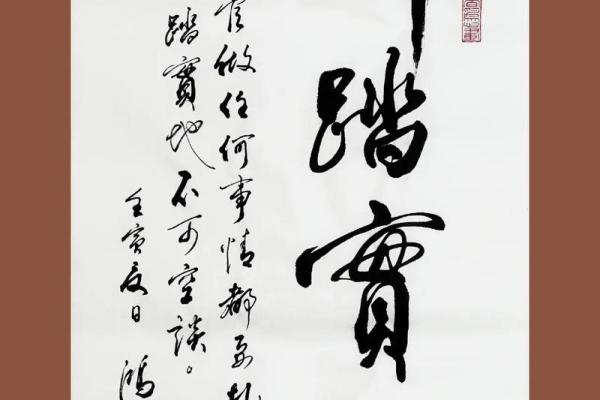 踏實
做任何事情都要
踏實地不可空談。
壬寅夏日 鴻